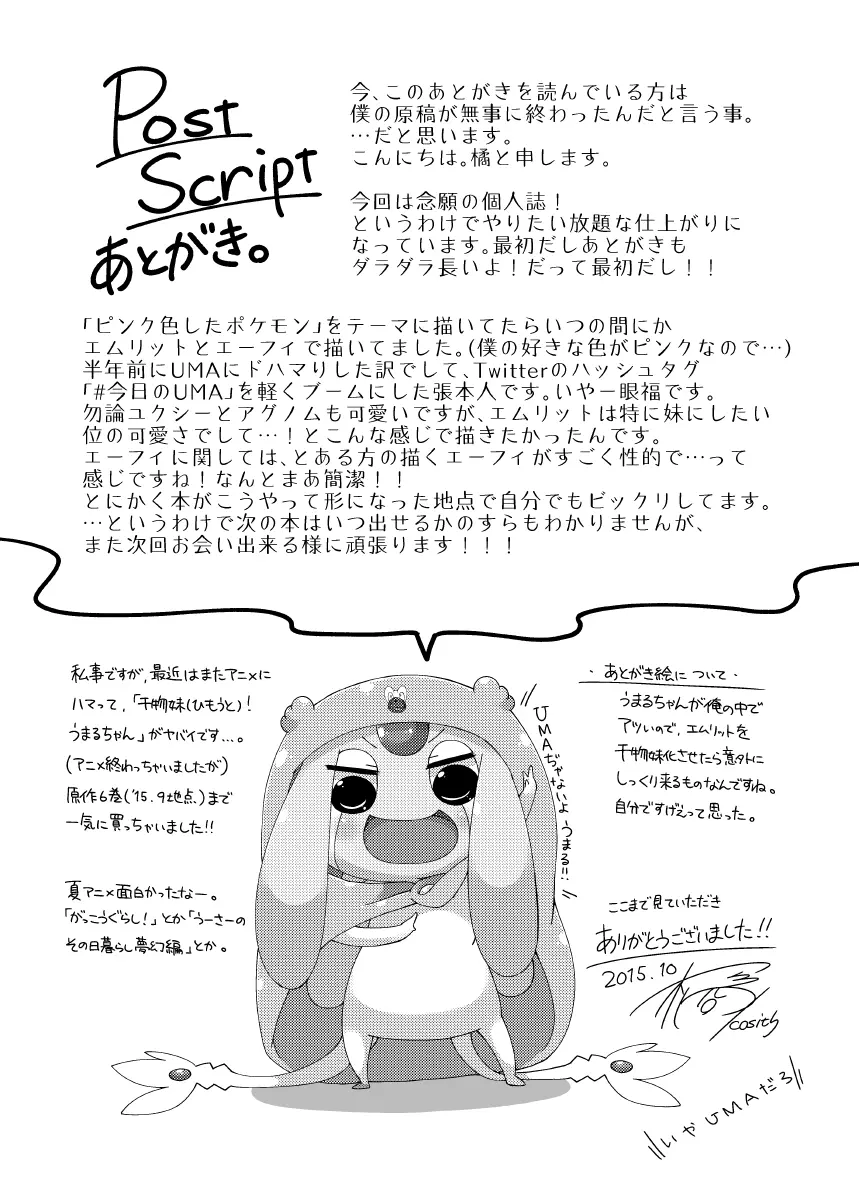 Post
Script
あとがき。
今、このあとがきを読んでいる方は
僕の原稿が無事に終わったんだと言う事。
…だと思います。
こんにちは。橘と申します。
今回は念願の個人誌！
というわけでやりたい放題な仕上がりに
なっています。最初だしあとがきも
ダラダラ長いよ！だって最初だし！！
「ピンク色したポケモン」をテーマに描いてたらいつの間にか
エムリットとエーフィで描いてました。(僕の好きな色がピンクなので…)
半年前にUMAにドハマりした訳でして、Twitterのハッシュタグ
「#今日のUMA」を軽くブームにした張本人です。いやー眼福です。
勿論ユクシーとアグノムも可愛いですが、エムリットは特に妹にしたい
位の可愛さでして…！とこんな感じで描きたかったんです。
エーフィに関しては、とある方の描くエーフィがすごく性的で…って
感じですね！なんとまあ簡潔！！
とにかく本がこうやって形になった地点で自分でもビックリしてます。
…というわけで次の本はいつ出せるかのすらもわかりませんが、
また次回お会い出来る様に頑張ります！！！
私事ですが、最近はまたアニメに
ハマって、「干物妹(ひもうと)!
うまるちゃん」がヤバイです…。
(アニメ終わっちゃいましたが)
原作6巻('15.9地点)まで
一気に買っちゃいました!!
夏アニメ面白かったなー。
「がっこうぐらし!」とか「うーさーの
その日暮らし夢幻編」とか。
UMAぢゃないよ うまる!!
・あとがき絵について・
うまるちゃんが俺の中で
アツいので、エムリットを
干物妹化させたら意外に
しっくり来るものなんですね。
自分ですげえって思った。
ここまで見ていただき
ありがとうございました!!
2015.10
橘
cosith
いやUMAだろ